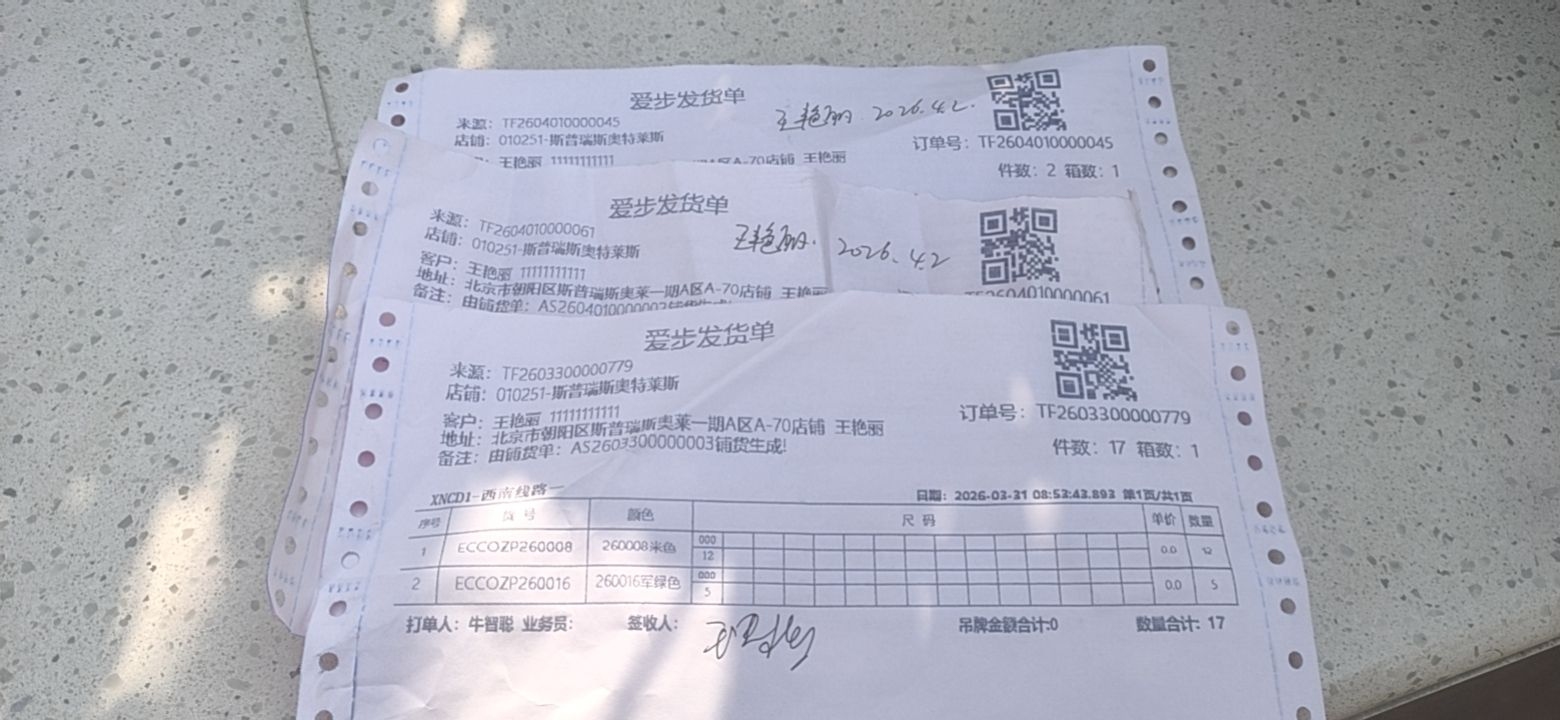 爱步发货单
王艳丽 2026.4.2.
来源：TF2604010000045
店铺：010251-斯普瑞斯奥特莱斯
订单号：TF2604010000045
王艳丽 11111111111
区A-70店铺 王艳丽
件数：2 箱数：1
爱步发货单
王艳丽. 2026.4.2
来源：TF2604010000061
店铺：010251-斯普瑞斯奥特莱斯
客户：王艳丽 11111111111
地址：北京市朝阳区斯普瑞斯奥莱一期A区A-70店铺 王艳丽
TF2604010000061
备注：由铺货单：AS2604010000002铺货生成!
爱步发货单
来源：TF2603300000779
店铺：010251-斯普瑞斯奥特莱斯
订单号：TF2603300000779
客户：王艳丽 11111111111
地址：北京市朝阳区斯普瑞斯奥莱一期A区A-70店铺 王艳丽
备注：由铺货单：AS2603300000003铺货生成!
件数：17 箱数：1
XNCD1-西南线路一
日期：2026-03-31 08:53:43.893 第1页/共1页
序号 货号 颜色 尺码 单价 数量
1 ECCOZP260008 260008米色 000 12 0.0 12
2 ECCOZP260016 260016军绿色 000 5 0.0 5
打单人：牛智聪 业务员： 签收人： 吊牌金额合计:0 数量合计：17